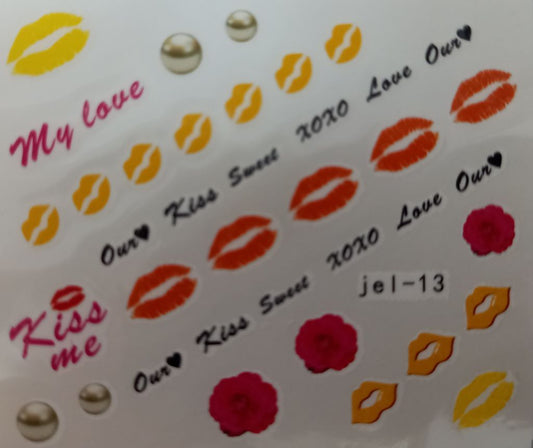 My love
Our♥ Kiss Sweet XOXO Love Our♥
Kiss
me
Our♥ Kiss Sweet XOXO Love Our♥
jel-13